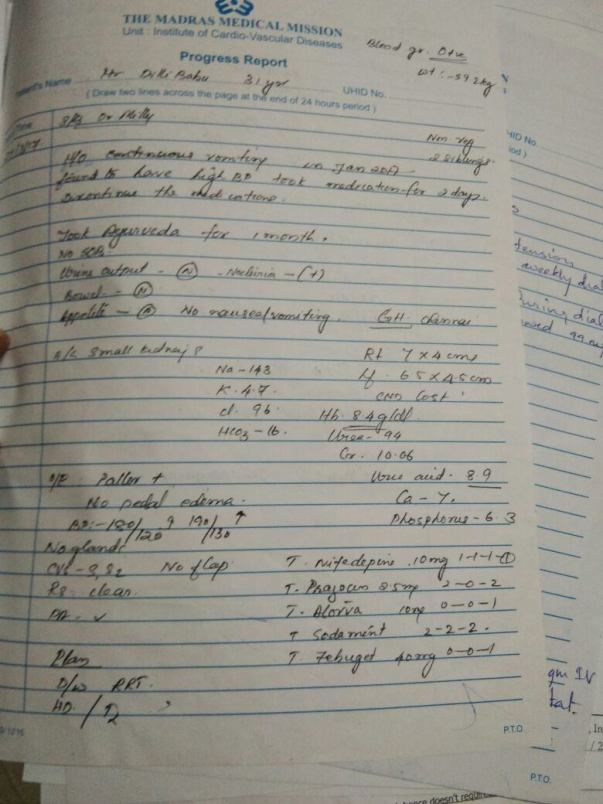 THE MADRAS MEDICAL MISSION
Unit : Institute of Cardio-Vascular Diseases
Blood gr. O+ve
Progress Report
wt :- 59.2kg
Patient's Name Mr Dilli Babu 31 yr UHID No.
( Draw two lines across the page at the end of 24 hours period )
Dr Milly
Non veg
2 siblings
H/o continuous vomiting in Jan 2017
found to have high BP took medication for 2 days.
Discontinue the medications.
Took Ayurveda for 1 month.
No SOB
Urine output - N - Nocturia - (+)
Bowel - N
Appetite - N No nausea/vomiting. GH. Chennai
small kidneys Rt 7 x 4 cms
Na - 143 Lf. 6.5 x 4.5 cm
K. 4.7. CMD lost
cl. 96. Hb. 8.4 g/dl
HCO3 - 16. Urea - 94
Cr. 10.06
O/E Pallor + Uric acid - 8.9
No pedal edema. Ca - 7.
BP:- 180/120 190/130 ↑ Phosphorus - 6.3
No glands
CVS - S1 S2 No flap T. Nifedepine 10mg 1-1-1-1
RS clear. T. Prazocin 2.5mg 2-0-2
PA. ✓ T. Atorva 10mg 0-0-1
T Sodamint 2-2-2.
Plan T. Febuget 40mg 0-0-1
D/w RRT.
HD /
P.T.O.
HID No.
iod )
tension
weekly dial
during dial
gm IV
tat.
P.T.O.